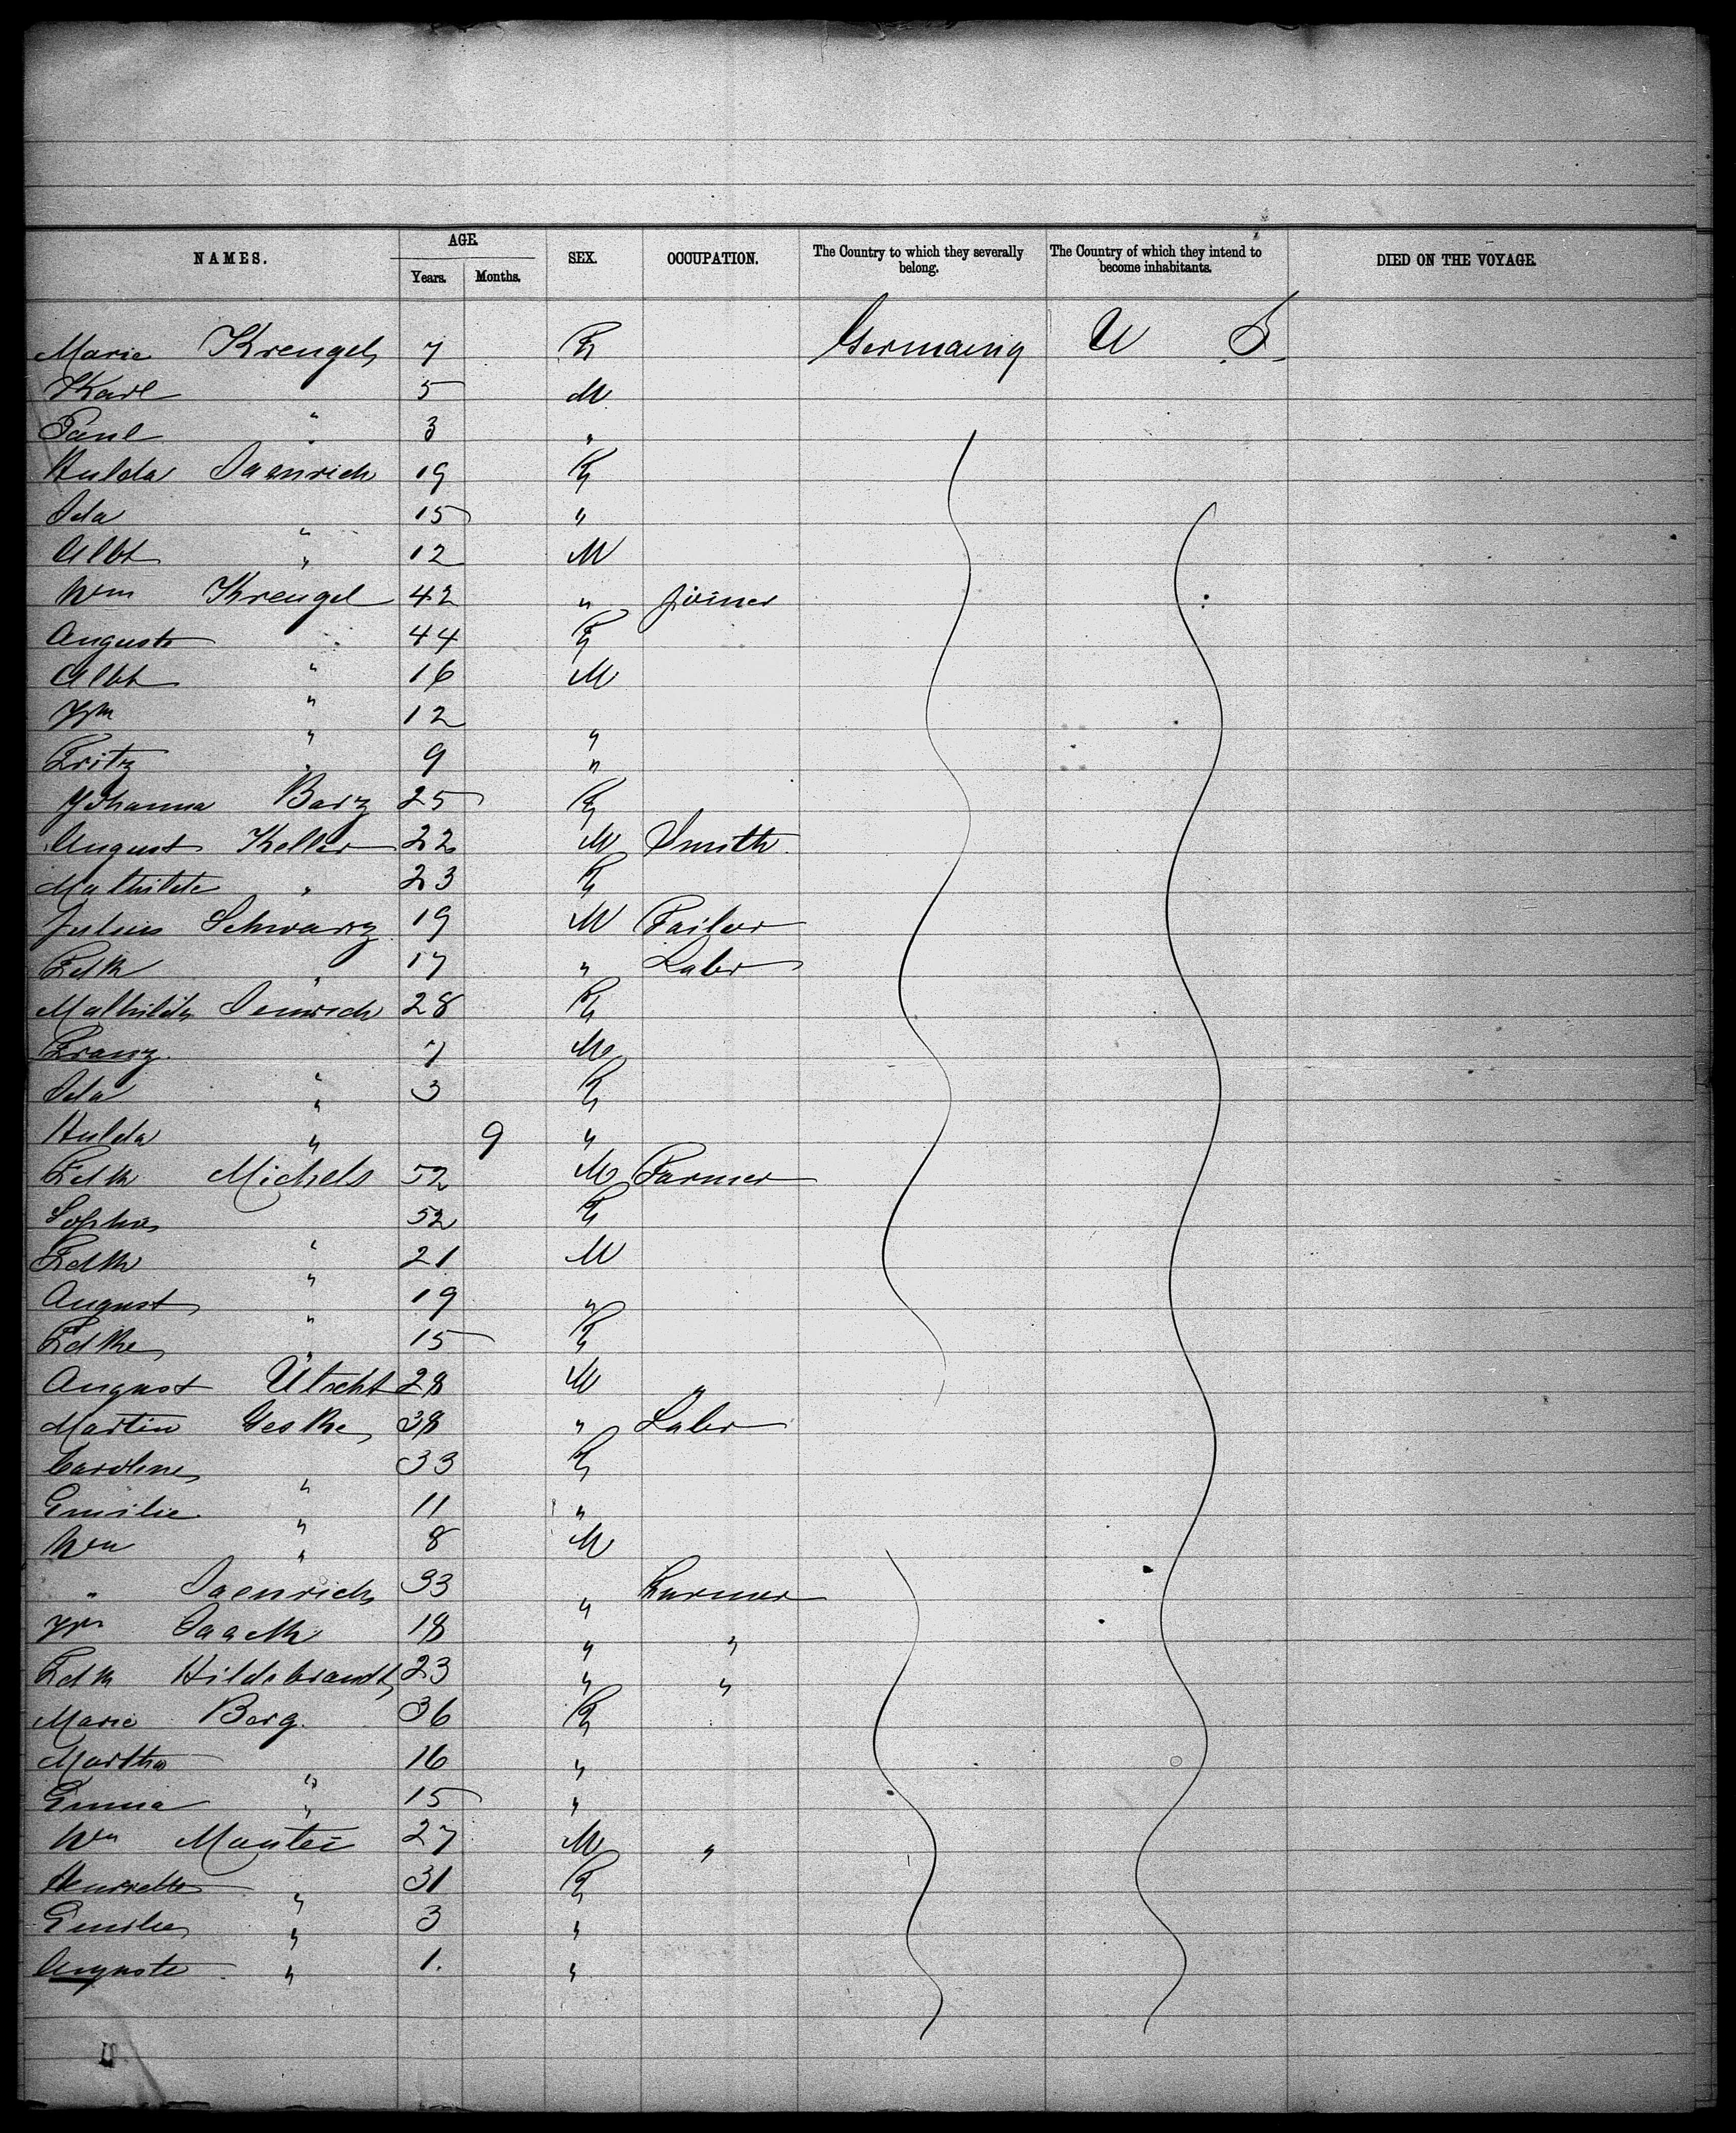 NAMES. AGE. SEX. OCCUPATION. The Country to which they severally belong. The Country of which they intend to become inhabitants. DIED ON THE VOYAGE.
Years. Months.
Marie Krengel 7 F Germany U S
Karl 5 M
Paul " 3 "
Hulda Jaenrich 19 F
Ida " 15 "
Albt " 12 M
Wm Krengel 42 " joiner
Auguste " 44 F
Albt " 16 M
Wm " 12
Fritz " 9 "
Johanna Barz 25 F
August Keller 22 M Smith
Mathilde " 23 F
Julius Schwarz 19 M Tailor
Fdk " 17 " Labr
Mathilde 28 F
Franz 7 M
Ida " 3 F
Hulda " 9 "
Fdk Michels 52 M Farmer
Sophie 52 F
Fdk " 21 M
August " 19 "
Fdke " 15 F
August Utecht 28 M "
Martin Geske 38 " Labr
Caroline 33 F
Emilie " 11 "
Wm " 8 M
" Jaenrich 33 " Farmer
18 " "
Fdk Hildebrandt 23 " "
Marie Berg 36 F
Martha 16 "
Emma " 15 "
Wm Mantei 27 M "
Henriette 31 F
Emilie " 3 "
Auguste " 1. "